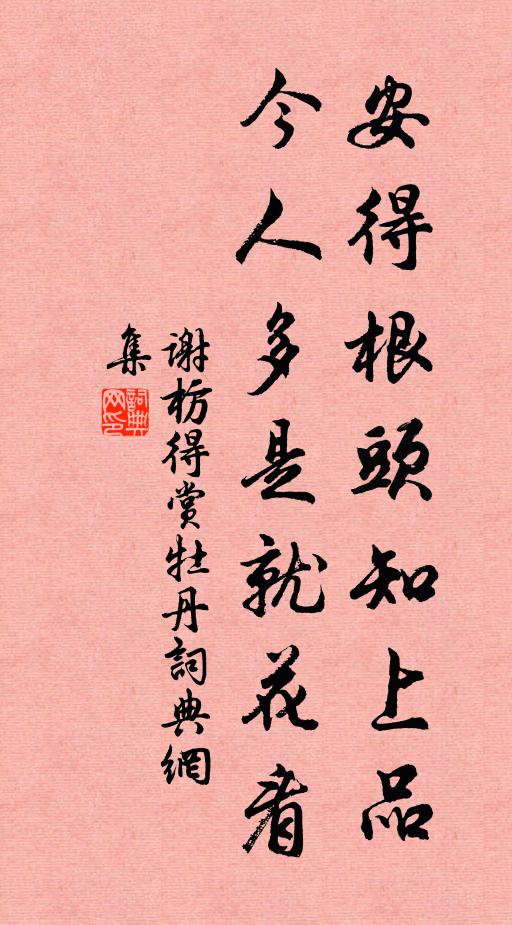 安得根頭知上品
今人多是就花看
謝枋得賞牡丹詞典網
集
詞典網印